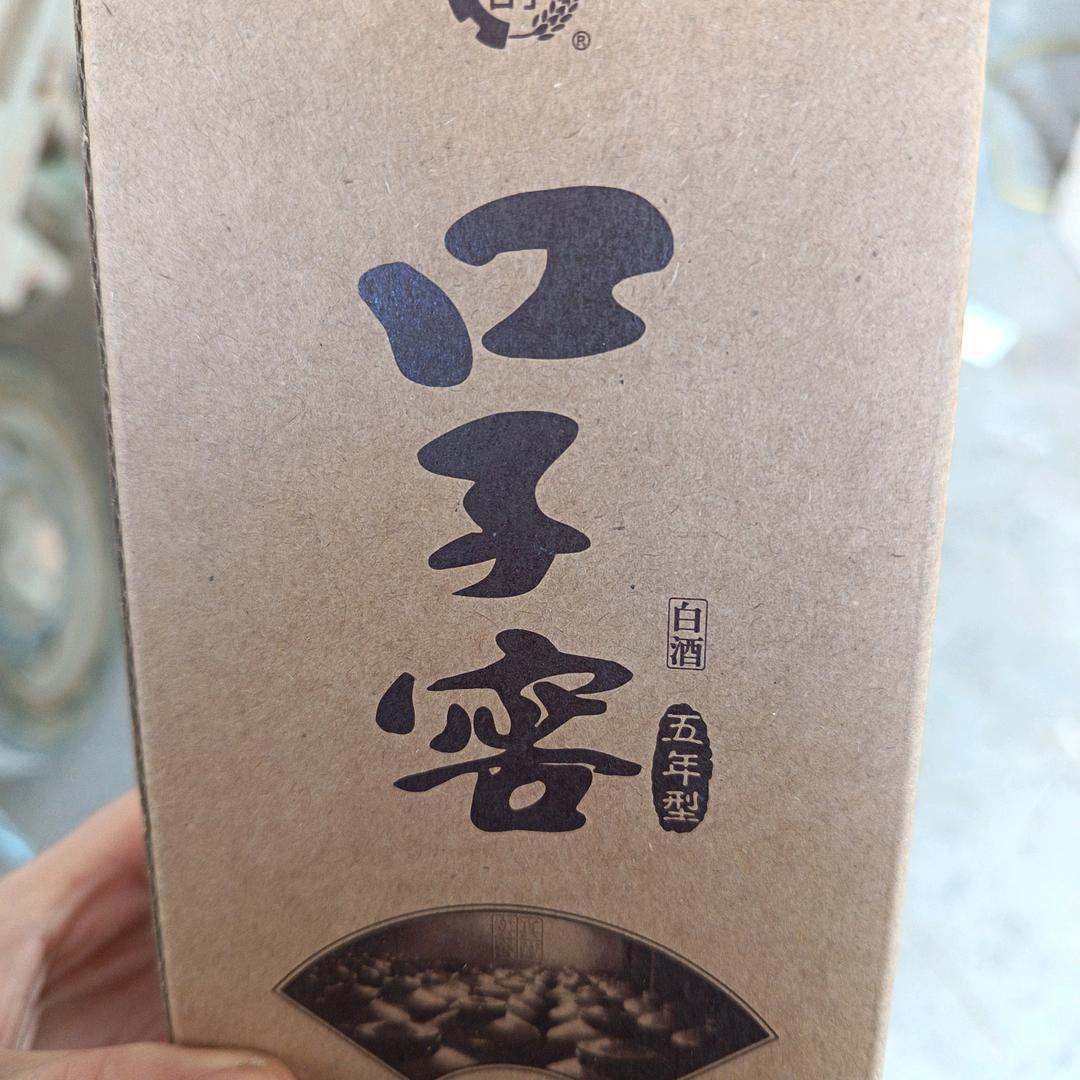 ®
口子窖
白酒
五年型